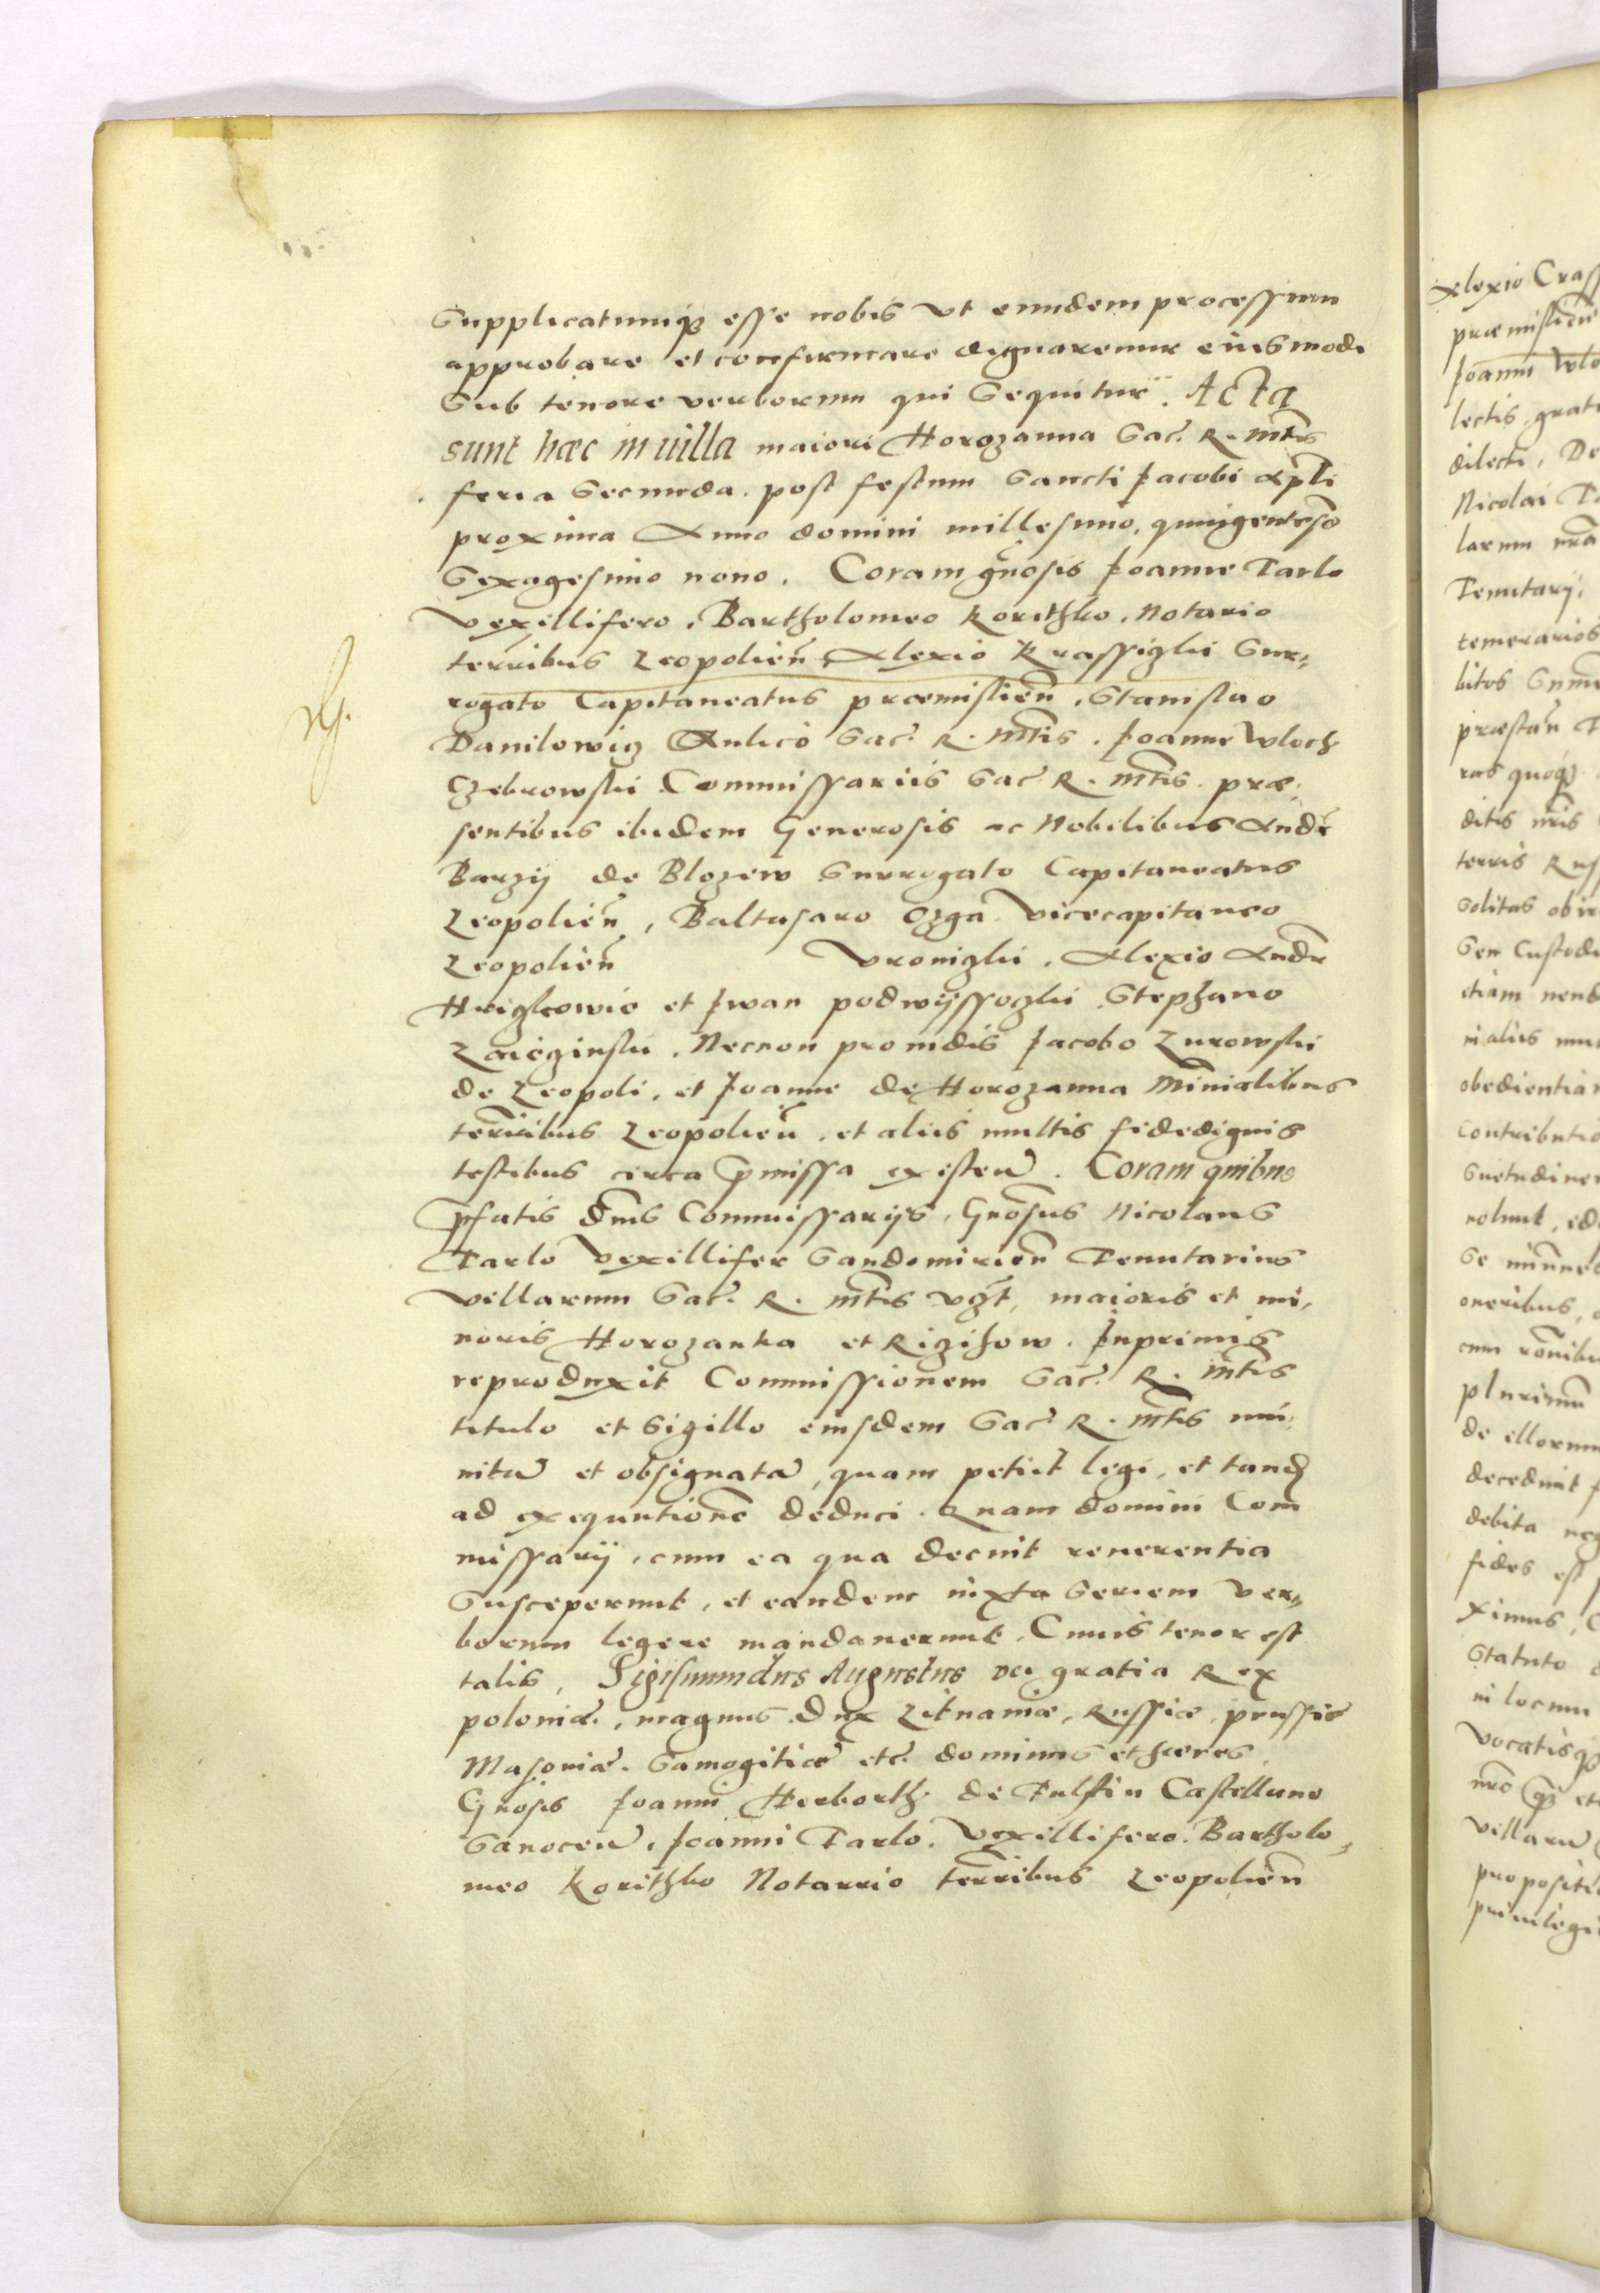 Supplicatumq; esse nobis vt eundem processum
approbare et confirmare dignaremur eiusmodi
Sub tenore verborum qui sequitur. Acta
sunt hæc in uilla maiori Horozanna Sac. R. Mtis
feria Secunda post festum Sancti Jacobi Apli
proxima Anno domini millesimo, quingentesō
Sexagesimo nono. Coram gnosis Joanne Tarlo
Vexillifero, Bartholomeo Korithko, Notario
terribus Leopolien̄ Alexio Krassiczki Sur,
rogato Capitaneatus præmislien̄, Stanislao
Danilowicz Aulico Sac. R. Mtis. Joanne Wloch
Czebrowski Commissariis Sac. R. Mtis. præ,
sentibus ibidem Generosis ac Nobilibus Andr
Barzij de Blozew Surrogato Capitaneatus
Leopolien̄, Baltasaro Ozga Vicecapitaneo
Leopolien̄ Vroniczki, Alexio Andr
et Jwan podwijssoczki Stephano
Necnon prouidis Jacobo Zurowski
de Leopoli, et Joanne de Horozanna Minialibus
terribus Leopolien̄, et aliis multis fidedignis
testibus circa p̄missa existen̄. Coram quibus
p̄fatis Dnis Commissarijs, Gnosus Nicolaus
Tarlo Vexillifer Sandomirien̄ Tenutarius
Villarum Sac. R. Mtis vczt, maioris et mi,
noris Horozanka et Riczihow. Inprimis
reproduxit Commissionem Sac. R. Mtis
titulo et Sigillo eiusdem Sac. R. Mtis mu,
nitā et obsignatā, quam petiit legi, et tandē
ad exequutionē deduci. Quam domini Com
missarij, cum ea qua decuit reuerentia
Susceperunt, et eandem iuxta Seriem Ver,
borum legere mandauerunt, Cuius tenor est
talis, Sigismundus Augustus Dei gratia Rex
poloniæ, magnus Dux Lituaniæ, Russiæ, prussiæ
Masouiæ, Samogitiæ etc. dominus et heres
Gnosis Joanni Herborth de Fulstin Castellano
Sanocen̄, Joanni Tarlo, Vexillifero. Bartholo,
meo Korithko Notarrio terribus Leopolien̄
Alexio Crass
præmislien̄
Joanni Wlo
lectis, grat
dilecti, De
Nicolai Ta
larum nrā
Tenutarij,
temerarios
præstan̄ T
ras quoq;
ditis nris
terris Russ
Solitas obir
Sen Custodi
obedientia
Contributio
Suetudine
nolunt, ed
oneribus,
plurimū
de illorum
decedunt
debita neg
fides est
ximus, C
Statuto
in locum
Vocatisq;
nrō
Villarū
propositi
priuilegi